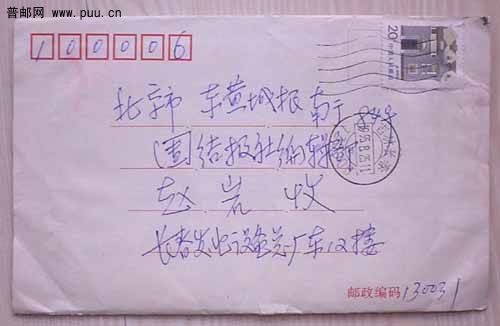 普邮网
www.puu.cn
100006
20
北京市 东黄城根南亍 84号
团结报社编辑部
赵岩 收
长春发电设备总厂东12楼
邮政编码 130031